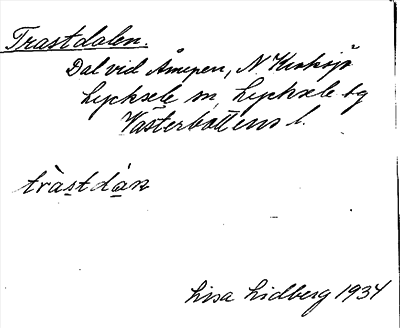 Trastdalen.
Dal vid Åmepen, N Knaksjö
Lycksele sn, Lycksele tg
Västerbottens l.
tràstdán
Lisa Lidberg 1934